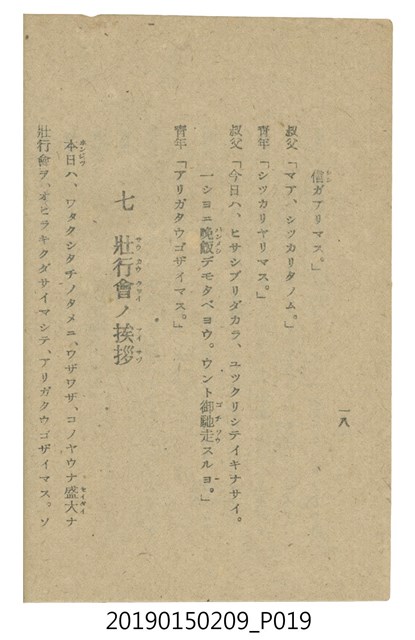 信ガアリマス。」
叔父「マア、シツカリタノム。」
青年「シツカリヤリマス。」
叔父「今日ハ、ヒサシブリダカラ、ユツクリシテイキナサイ。
一シヨニ晩飯デモタベヨウ。ウント御馳走スルヨ。」
青年「アリガタウゴザイマス。」
七 壯行會ノ挨拶
本日ハ、ワタクシタチノタメニ、ワザワザ、コノヤウナ盛大ナ
壯行會ヲ、オヒラキクダサイマシテ、アリガタウゴザイマス。ソ
一八
20190150209_P019